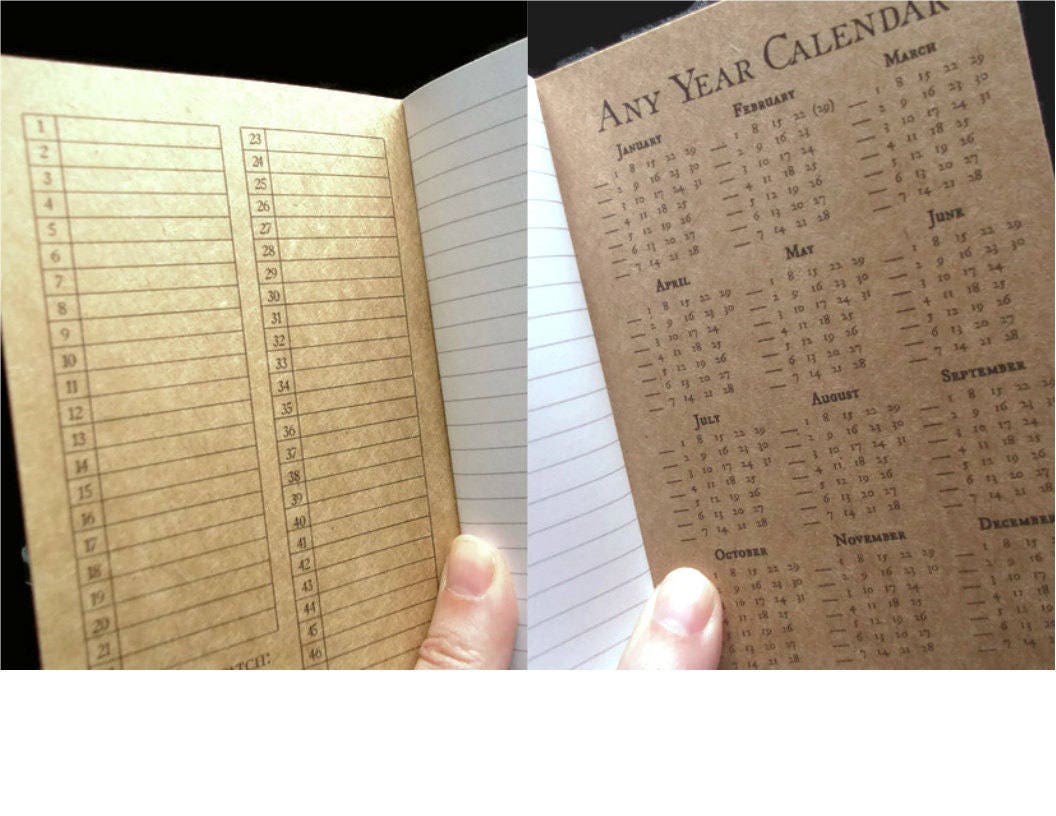 1
2
3
4
5
6
7
8
9
10
11
12
13
14
15
16
17
18
19
20
21
ATCH:
23
24
25
26
27
28
29
30
31
32
33
34
35
36
37
38
39
40
41
42
43
44
45
46
ANY YEAR CALENDAR
JANUARY
1 8 15 22 29
2 9 16 23 30
3 10 17 24 31
4 11 18 25
5 12 19 26
6 13 20 27
7 14 21 28
FEBRUARY
1 8 15 22 (29)
2 9 16 23
3 10 17 24
4 11 18 25
5 12 19 26
6 13 20 27
7 14 21 28
MARCH
1 8 15 22 29
2 9 16 23 30
3 10 17 24 31
4 11 18 25
5 12 19 26
6 13 20 27
7 14 21 28
APRIL
1 8 15 22 29
2 9 16 23 30
3 10 17 24
4 11 18 25
5 12 19 26
6 13 20 27
7 14 21 28
MAY
1 8 15 22 29
2 9 16 23 30
3 10 17 24 31
4 11 18 25
5 12 19 26
6 13 20 27
7 14 21 28
JUNE
1 8 15 22 29
2 9 16 23 30
3 10 17 24
4 11 18 25
5 12 19 26
6 13 20 27
7 14 21 28
JULY
1 8 15 22 29
2 9 16 23 30
3 10 17 24 31
4 11 18 25
5 12 19 26
6 13 20 27
7 14 21 28
AUGUST
1 8 15 22 29
2 9 16 23 30
3 10 17 24 31
4 11 18 25
5 12 19 26
6 13 20 27
7 14 21 28
SEPTEMBER
1 8 15 22
2 9 16 23
3 10 17 24
4 11 18 25
5 12 19 26
6 13 20 27
7 14 21 28
OCTOBER
1 8 15 22 29
9 16 23 30
10 17 24 31
11 18 25
12 19 26
13 20 27
14 21 28
NOVEMBER
1 8 15 22 29
2 9 16 23 30
3 10 17 24
4 11 18 25
5 12 19 26
6 13 20 27
7 14 21 28
DECEMBER
1 8 15
2 9 16
3 10 17
4 11 18
5 12 19
6 13 20